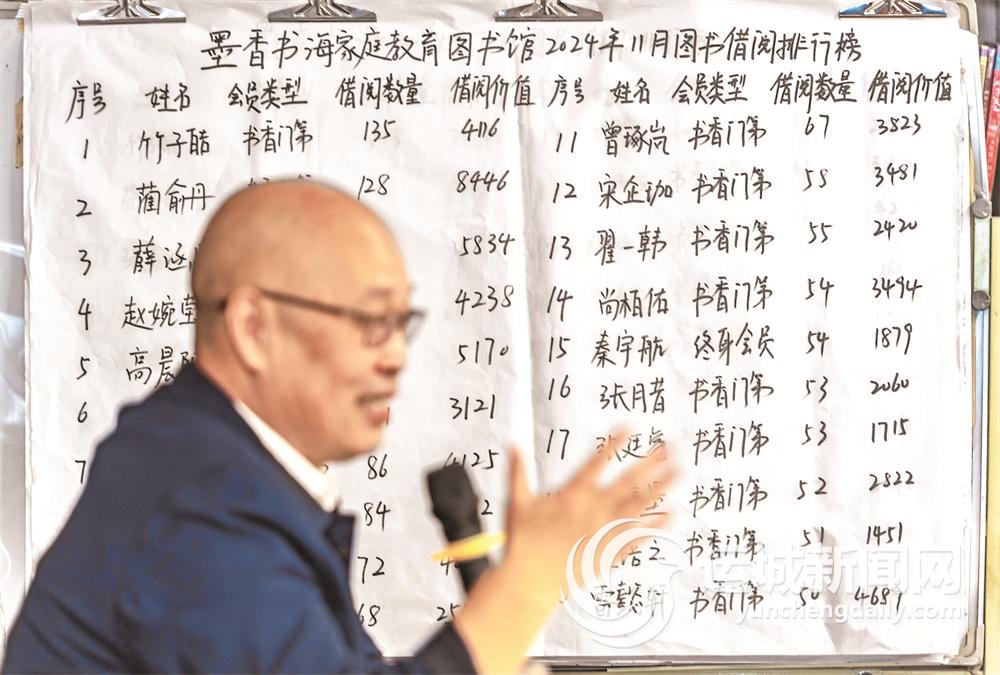 墨香书海家庭教育图书馆2024年11月图书借阅排行榜
序号 姓名 会员类型 借阅数量 借阅价值 序号 姓名 会员类型 借阅数量 借阅价值
1 竹子皓 书香门第 135 4116 11 曾琢岚 书香门第 67 3523
2 蔺俞丹 128 8446 12 宋企珈 书香门第 58 3481
3 薛涵 5834 13 翟一韩 书香门第 55 2420
4 赵婉 4238 14 尚柏佑 书香门第 54 3494
5 高晨 5170 15 秦宇航 终身会员 54 1879
6 3121 16 张月 书香门第 53 2060
7 86 4125 17 张廷 书香门第 53 1715
84 2 墨 书香门第 52 2822
72 浩之 书香门第 51 1451
68 25 雷懿轩 书香门第 50 4687
运城新闻网
yunchengdaily.com